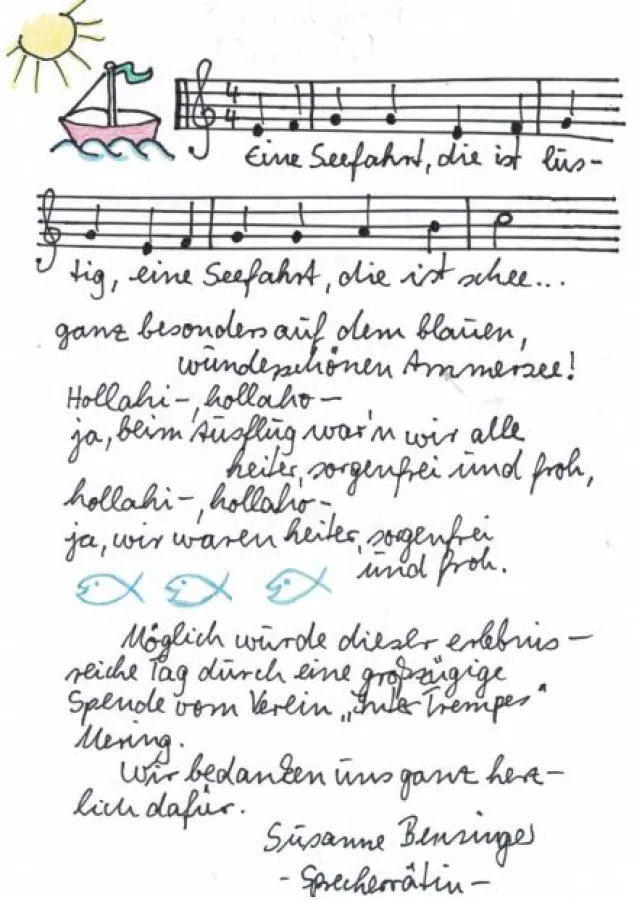 Eine Seefahrt, die ist lus-
tig, eine Seefahrt, die ist schee...
ganz besonders auf dem blauen,
wunderschönen Ammersee!
Hollahi-, hollaho-
ja, beim Ausflug war'n wir alle
heiter, sorgenfrei und froh,
hollahi-, hollaho-
ja, wir waren heiter, sorgenfrei
und froh.
Möglich wurde dieser erlebnis-
reiche Tag durch eine großzügige
Spende vom Verein
Mering.
Wir bedanken uns ganz herz-
lich dafür.
Susanne Bensinger
- Sprecherrätin -